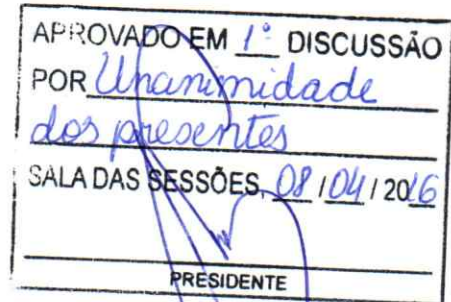 APROVADO EM 1ª DISCUSSÃO
POR Unanimidade
dos presentes
SALA DAS SESSÕES, 08 / 04 / 2016
PRESIDENTE